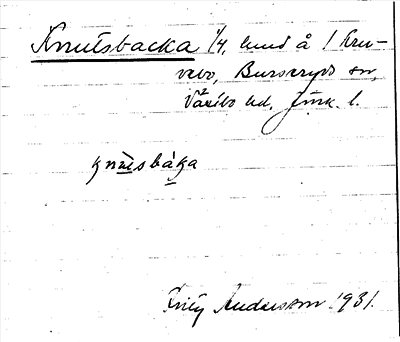 Knutsbacka 1/4, hemd å 1 Kru-
vebo, Burseryds sn,
Västbo hd, Jönk. l.
knu̲tsbáka
Fritz Andersson 1931.